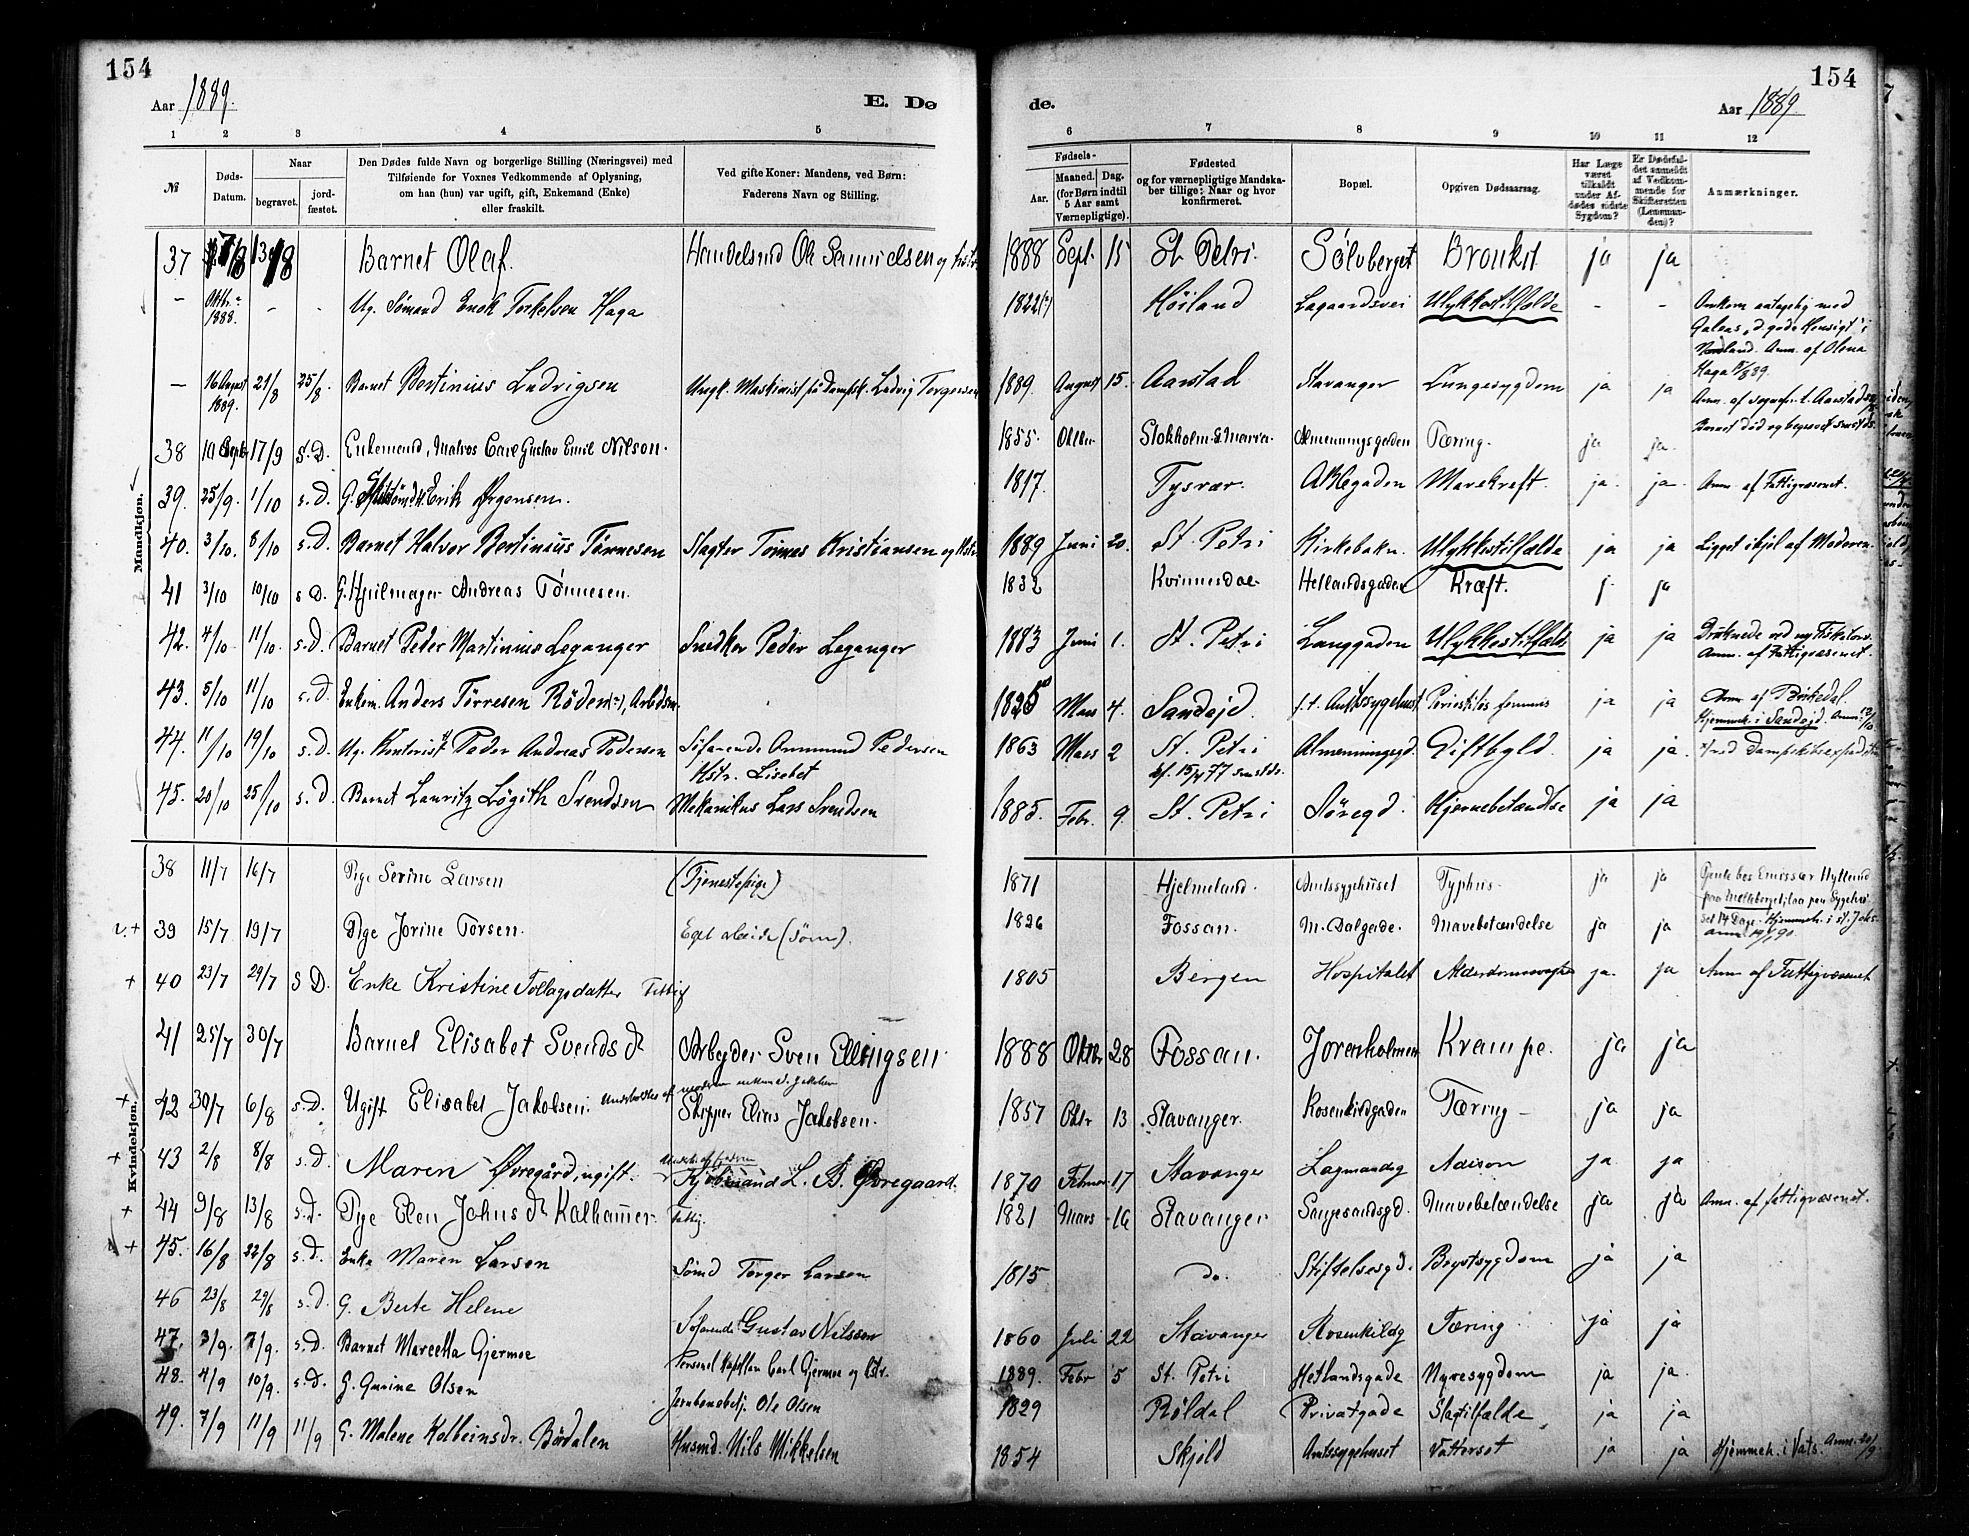 154
Aar 1889.
E. Dø
de.
Aar 1889.
154
1 2 3 4 5 6 7 8 9 10 11 12
№
Døds-Datum.
Naar
begravet.
jord-fæstet.
Den Dødes fulde Navn og borgerlige Stilling (Næringsvei) med
Tilføiende for Voxnes Vedkommende af Oplysning,
om han (hun) var ugift, gift, Enkemand (Enke)
eller fraskilt.
Ved gifte Koner: Mandens, ved Børn:
Faderens Navn og Stilling.
Fødsels-
Aar.
Maaned. Dag.
(for Børn indtil
5 Aar samt
Værnepligtige).
Fødested
og for værnepligtige Mandska-
ber tillige: Naar og hvor
konfirmeret.
Bopæl.
Opgiven Dødsaarsag.
Har Læge
været
tilkaldt
under Af-
dødes sidste
Sygdom?
Er Dødsfal-
det anmeldt
af Vedkom-
mende for
Skifteretten
(Lensman-
den)?
Anmærkninger.
Mandkjøn.
37 Barnet Olaf. Handelsmd Ole Samuelsen og 1888 Sept. 15 St Petri. Sølvberget Bronkit ja ja
- Oktbr 1888. - - Ug. Sømand Enok Torkelsen Haga 1822(?) Høiland Lagaardsvei Ulykkestilfælde - -
Galeas „d gode Hensigt" i
Nordland. Anm. af Olena
Haga
- 16 August 1889. 21/8 25/8 Barnet Bertinius Ludvigsen Ungk. Maskinist på Dampsk. Ludvig Torgersen 1889. August 15. Aarstad Stavanger Lungesygdom ja ja
Barnet død og begravet smstds.
38 10 Septr 17/9 S.D. Enkemand, Matros Carl Gustav Emil Nilson. 1855. Oktbr Stokholm S. Maria. Almenningsgaden Tæring. ja ja.
39. 25/9. 1/10 s.D. G. Erik Ørgensen. 1817. Tysvær. Aklegaden Mavekreft. ja. ja. Anm. af Fattigvæsenet.
40. 3/10. 8/10 s.D. Barnet Halvor Bertinius Tønnesen Slagter Tønnes Kristiansen og Hstr 1889 Juni 20. St. Petri Kirkebakn. Ulykkestilfælde ja ja Ligget ihjel af Moderen.
41 3/10 10/10 s D. G. Hjulmager Andreas Tønnesen. 1832 Kvinnesdal Hetlandsgaden Kræft. j. ja
42. 4/10 11/10. s.D. Barnet Peder Martinius Leganger Snedker Peder Leganger 1883 Juni 1. St. Petri Langgaden Ulykkestilfælde ja ja Druknede ved
Anm. af Fattigvæsenet.
43. 5/10 11/10 s.D. Enkem. Anders Tørresen Røden(?), Arbdsm. Mars 4. Sandeid. f. t. Amtssygehuset ja ja Anm. af Birkedal.
Hjemmeh. i Sandeid. Anm. 12/10
44. 11/10 19/10 s.D. Ug. Kontorist Peder Andreas Pedersen Søfarende Ommund Pedersen Hstr. Lisebet 1863 Mars 2 St. Petri kf. 15/4 77 smstds. Almenningsgd. Giftbyld. ja ja. ved Dampskibsexpedition
45. 20/10 25/10 s.D. Barnet Lauritz Løgith Svendsen Mekanikus Lars Svendsen 1885. Febr. 9. St. Petri Søregd. Hjernebetændelse ja ja
Kvindekjøn.
38 11/7 16/7 Pige Serine Larsen (Tjenestepige) 1871 Hjelmeland. Amtssygehuset Typhus. ja ja
39 15/7 19/7 Pige Jorine Torsen. Eget arbeide (søm). 1826 Fossan. M. Dalgade. Mavebetændelse ja ja
+ 40 23/7 29/7 S D. Enke Kristine Tollagsdatter Fattig 1805 Bergen Hospitalet Alderdomssvaghed ja. ja Anm af Fattigvæsenet
41 25/7 30/7 Barnet Elisabet Svends dt Arbeyder Sven Ellingsen 1888 Oktbr 28 Fossan. Jorenholmen Krampe. ja ja
+ 42 30/7 6/8 s.D. Ugift Elisabet Jakobsen. Underholdes af moderen Skipper Elias Jakobsen. 1857 Oktr 13 Stavanger. Rosenkildgaden Tæring - ja ja
+ 43 2/8 8/8 s.D. Maren Øvregård, ugift. Kjøbmand L. B. Øvregaard. 1870 Februar 17 Stavanger Lagmandsg Adison ja. ja
+ 44 9/8 13/8 s.D. Pige Elen Johns dt Kalhammer Fattig. 1821 Mars 16 Stavanger Sangesandsgd. Mavebetændelse ja ja Anm. af fattigvæsenet.
+ 45. 16/8 22/8 s.D. Enke Maren Larsen Sømd Torger Larsen 1815 do. Stiftelsesgd. Brystsygdom ja ja
46 23/8 29/8 s.D. G. Berte Helene Søfarende Gustav Nilssen 1860 Juli 22 Stavanger Rosenkildg Tæring ja ja
47. 3/9. 7/9. s.D. Barnet Marcella Gjermoe Personel Kapellan Carl Gjermoe og Hstr. 1889. Febr 5 St. Petri Hetlandsgade Nyresygdom ja ja.
48. 4/9 10/9. s.D. G. Gurine Olsen Jernbanebetj. Ole Olsen 1829 Røldal Privatgade Slagtilfælde ja ja
49. 7/9 11/9 11/9 G. Malene Kolbeinsdr. Bårdalen Husmd. Nils Mikkelsen 1854 Skjold Amtssygehuset Vattersot ja ja Hjemmeh. i Vats. Anm. 20/9